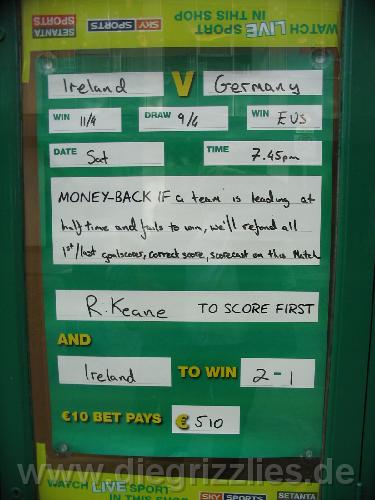 WATCH LIVE SPORT
IN THIS SHOP
SKY SPORTS
SETANTA SPORTS
Ireland V Germany
WIN 11/4 DRAW 9/4 WIN EVS
DATE Sat TIME 7.45pm
MONEY-BACK IF a team is leading at
half time and fails to win, we'll refund all
1st/last goalscorer, correct score, scorecast on this Match
R. Keane TO SCORE FIRST
AND
Ireland TO WIN 2-1
€10 BET PAYS € 510
WATCH LIVE SPORT
IN THIS SHOP
SKY SPORTS
SETANTA
www.diegrizzlies.de